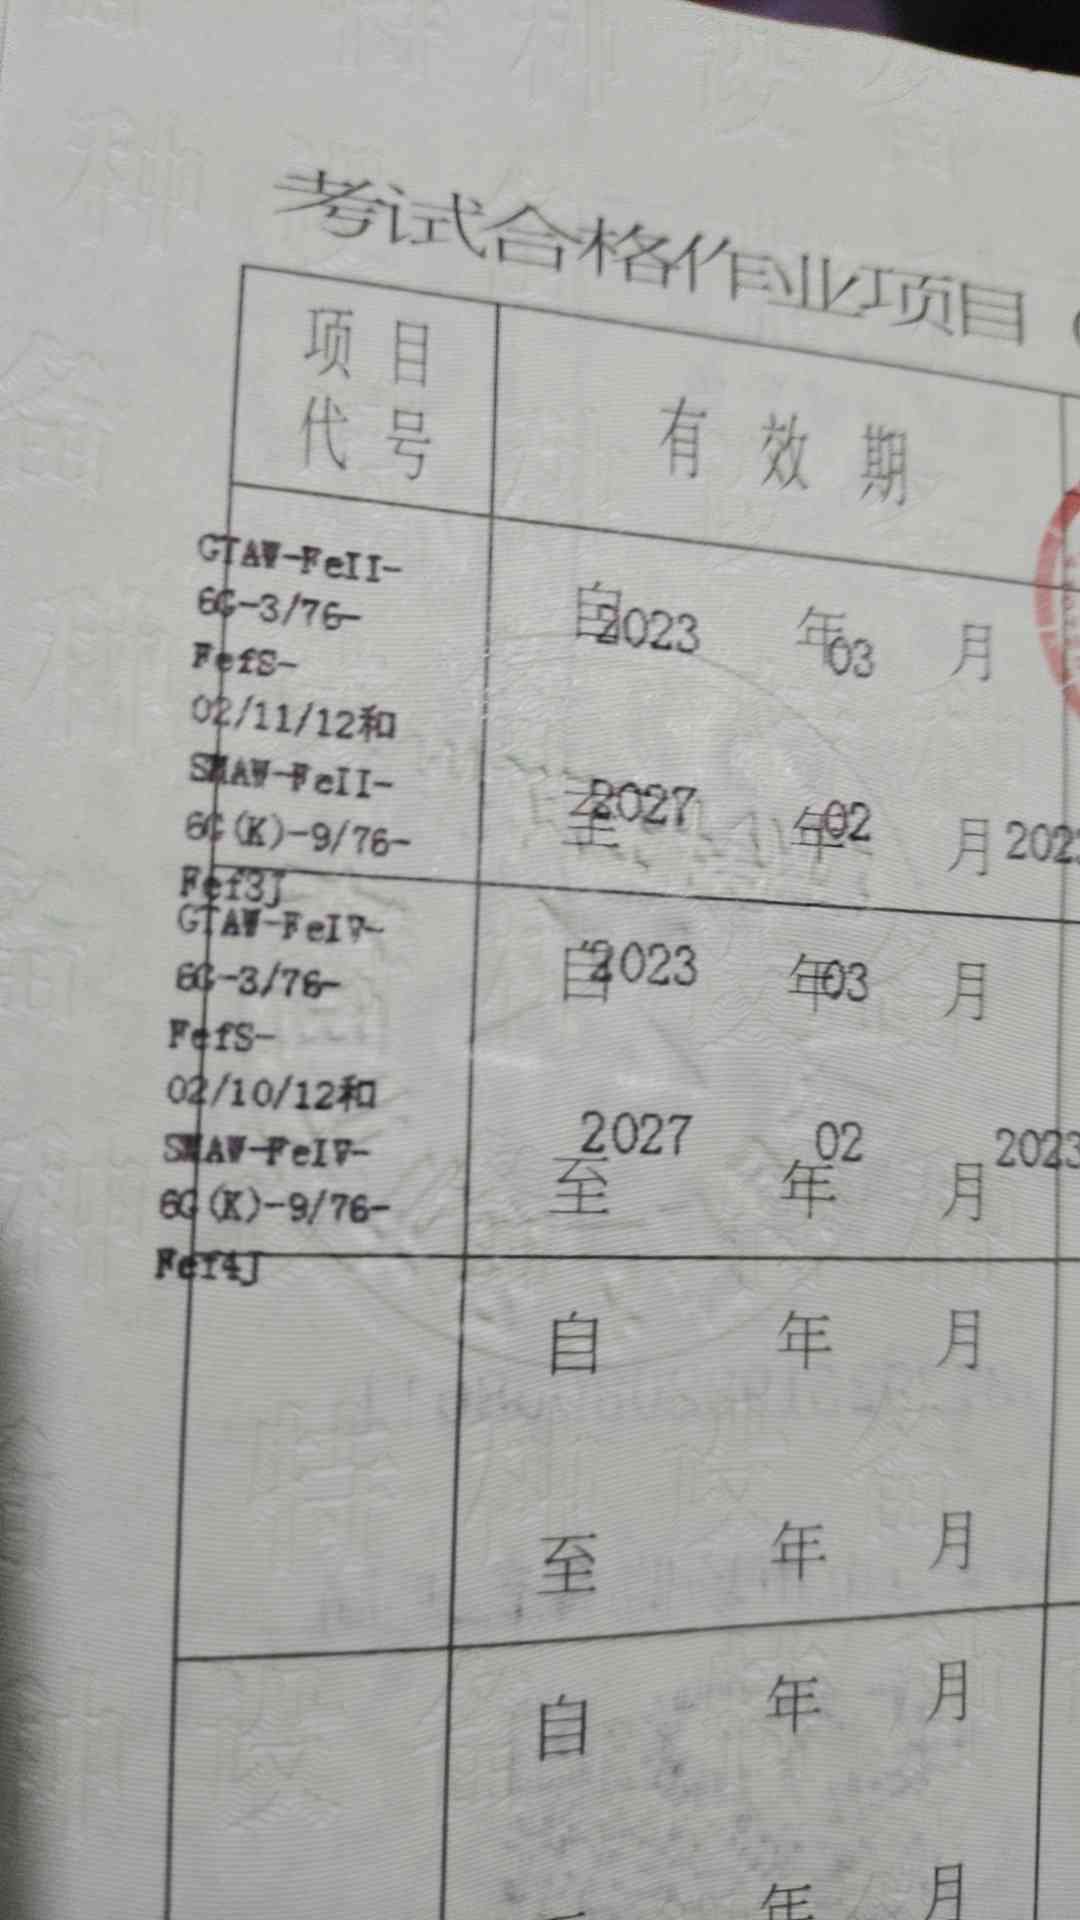 考试合格作业项目
项目
代号
有效期
GTAW-FeII-
6G-3/76-
FefS-
02/11/12和
SMAW-FeII-
6G(K)-9/76-
Fef3J
自2023年03月
至2027年02月
GTAW-FeIV-
6G-3/76-
FefS-
02/10/12和
SMAW-FeIV-
6G(K)-9/76-
Fef4J
自2023年03月
至2027年02月
2023
自 年 月
至 年 月
自 年 月
年 月